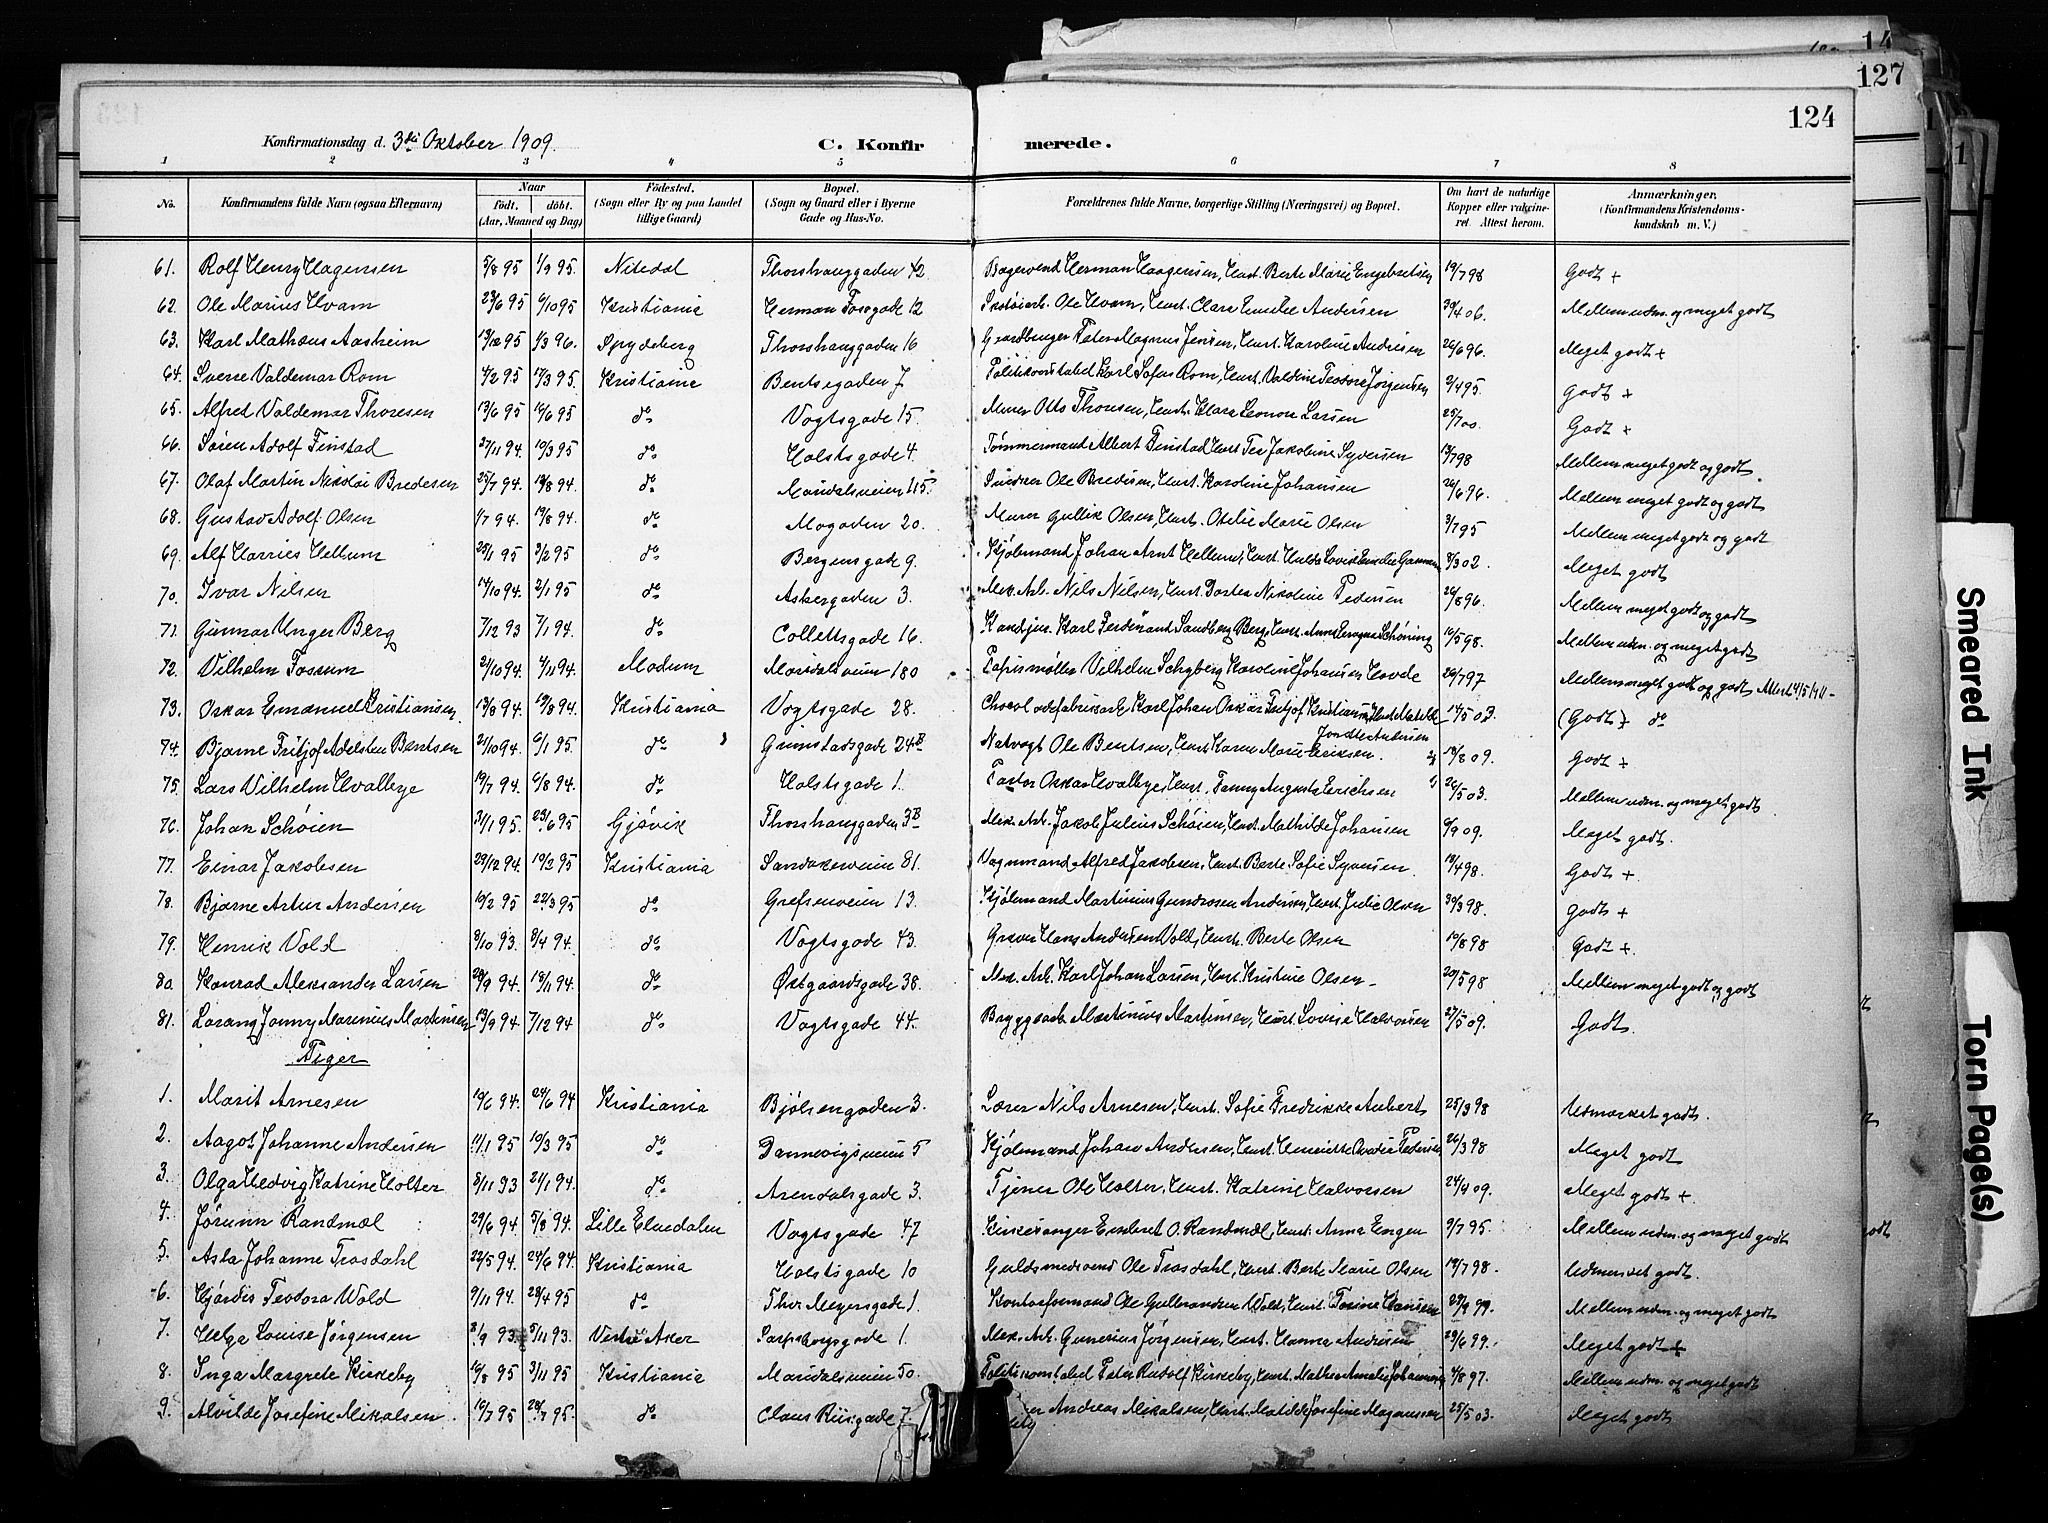 14
127
124
Konfirmationsdag d. 3die Oktober 1909. C. Konfirmerede.
1 2 3 4 5 6 7 8
No. Konfirmandens fulde Navn (ogsaa Efternavn) Naar født. døbt. (Aar, Maaned og Dag) Fødested. (Sogn eller By og paa Landet tillige Gaard) Bopæl. (Sogn og Gaard eller i Byerne Gade og Hus-No. Forældrenes fulde Navne, borgerlige Stilling (Næringsvei) og Bopæl. Om havt de naturlige Kopper eller vakcineret. Attest herom. Anmærkninger, (Konfirmandens Kristendomskundskab m. V.)
61. Rolf Henry Hagensen 5/8 95 1/9 95. Nitedal Thorshauggaden 42 Bagersvend Herman Haagensen, Hust. Berte Marie Engebretsen 19/7 98 Godt +
62. Ole Marius Hvam 23/6 95 6/10 95 Kristiania Herman Fossgade 12 Skotøiarb. Ole Hvam, Hust. Clara Emilie Andersen 30/4 06. Mellem udm. og meget godt
63. Karl Mathæus Aasheim 13/12 95 1/3 96. Spydeberg Thorshauggaden 16 Gaardbruger Peter Magnus Jensen, Hust. Karoline Andresen 26/6 96. Meget godt +
64. Sverre Valdemar Rom 4/2 95 17/3 95. Kristiania Bentsegaden 7 Politikonstabel Karl Sofus Rom, Hust. Valdine Teodora Jørgensen 2/4 95. Godt +
65. Alfred Valdemar Thoresen 13/6 95 16/6 95 do Vogtsgade 15. Murer Otto Thoresen, Hust. Klara Leonora Larsen 25/7 00. Godt +
66. Søren Adolf Finstad 27/11 94. 10/3 95 do Holstsgade 4. Tømmermand Albert Finstad Hust. Tea Jakobine Syversen 13/7 98 Mellem meget godt og godt
67. Olaf Martin Nikolai Bredesen 25/7 94. 19/8 94. do Maridalsveien 115. Snedker Ole Bredesen, Hust. Karoline Johansen 26/6 96. Mellem meget godt og godt
68. Gustav Adolf Olsen 1/7 94. 19/8 94. do Mogaden 20. Murer Gullik Olsen, Hust. Otelie Marie Olsen 3/7 95 Mellem meget godt og godt
69. Alf Harries Hellum 25/1 95 3/2 95 do Bergensgade 9. Kjølemand Johan Arnt Hellum, Hust. Hulda Lovise Emilie 8/3 02. Meget godt
70. Ivar Nilsen 14/10 94. 2/1 95 do Askergaden 3. Mek. Arb. Nils Nilsen, Hust. Dortea Nikoline Pedersen 26/8 96. Mellem meget godt og godt
71. Gunnar Unger Berg 7/12 93 7/1 94. do Collettsgade 16. Kand jur. Karl Ferdinand Sandberg Berg, Hust. Anna Schøning 16/5 98. Mellem udm. og meget godt
72. Vilhelm Fossum 21/10 94 4/11 94. Modum Maridalsveien 180 Papirsmøller Vilhelm Schyberg Karoline Johansen Hovde 26/7 97 Mellem meget godt og godt Attest 4/5 1911
73. Oskar Emanuel Kristiansen, 13/8 94. 19/8 94. Kristiania Vogtsgade 28. Chocoladefabrikarb. Karl Johan Oskar Fritjof Kristiansen, Hust. Matilde Andersen 14/5 03. (Godt) + do
74. Bjarne Fritjof Adelsten Bentsen 21/10 94. 6/1 95. do Grimstadsgade 24B Natvagt Ole Bentsen, Hust. Karen Marie Eriksen. 19/8 09. Godt +
75. Lars Vilhelm Hvalbye 19/7 94. 6/8 94. do Holstsgade 1. Pastor Oskar Hvalbye, Hust. Fanny Augusta Erichsen 26/5 03. Mellem udm. og meget godt.
76. Johan Schøien 31/1 95. 23/6 95 Gjøvik Thorshauggaden 3B Mek. Arb. Jakob Julius Schøien, Hust. Mathilde Johansen 6/9 09. Meget godt.
77. Einar Jakobsen 29/12 94. 10/2 95 Kristiania Sandakerveien 81. Vognmand Alfred Jakobsen, Hust. Berte Sofie Syversen. 18/4 98. Godt +
78. Bjarne Artur Andersen 10/2 95 22/3 95 do Grefsenveien 13. Kjølemand Martinius Gundrosen Andersen, Hust. Julie Olsen 30/3 98. Godt +
79. Henrik Vold 9/10 93. 8/4 94. do Vogtsgade 43. Graver Hans Andersen Vold, Hust. Berte Olsen 10/8 98 Godt +
80. Konrad Aleksander Larsen 28/9 94. 18/11 94. do Østgaardsgade 38. Mek. Arb. Karl Johan Larsen, Hust. Kristine Olsen 20/5 98 Mellem meget godt og godt
81. Lorang Jonny Marenius Martinsen 13/9 94. 7/12 94 do Vogtsgade 44. Bryggearb. Martinius Martinsen, Hust. Lovise Halvorsen 27/5 09. Godt.
Piger
1. Marit Arnesen 10/6 94. 24/6 94 Kristiania Bjølsengaden 3. Lærer Nils Arnesen, Hust. Sofie Fredrikke Aubert 25/3 98 Udmærket godt.
2. Aagot Johanne Andersen 11/1 95 10/3 95 do Dannevigsveien 5 Kjølemand Johan Andersen, Hust. Henriette Pedersen 26/3 98 Meget godt
3. Olga Hedvig Katrine Holter 8/11 93 21/1 94. do Arendalsgade 3. Tjener Ole Holter, Hust. Katrine Halvorsen 24/4 09. Meget godt +
4. Jørunn Randmæl 29/6 94 5/8 94. Lille Elvedalen Vogtsgade 47 Kirkesanger Endret O. Randmæl, Hust. Anna Engen 9/7 95 Mellem udm. og meget godt
5. Asta Johanne Trosdahl 22/5 94. 24/6 94. Kristiania Holstsgade 10 Guldsmedsvend Ole Trosdahl, Hust. Berte Marie Olsen 19/7 98. Udmerket godt.
6. Hjørdis Teodora Wold 9/11 94. 28/4 95 do Thor Meyersgade 1. Kontorformand Ole Gulbrandsen Wold, Hust. Josine Hansen 29/9 99. Mellem udm. og meget godt
7. Helga Louise Jørgensen 8/9 93. 5/11 93. Vestre Aker Sarpsborgsgade 1. Mek. Arb. Gunerius Jørgensen, Hust. Hanna Andersen 29/6 99. Meget godt +
8. Inga Margrete Kirkeby 16/8 95 3/11 95 Kristiania Maridalsveien 50. Politikonstabel Peter Rudolf Kirkeby, Hust. Mathea Amalie Johannesen 4/8 97. Mellem udm. og meget godt
9. Alvilde Josefine Mikalsen. 16/7 95 28/7 95. do Claus Riisgade 7 Andreas Mikalsen, Hust. Matilde Josefine Magnussen 25/5 03. Meget godt
Smeared Ink
Torn Page(s)